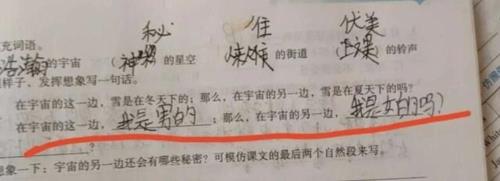 秘 住 优美
充词语。
浩瀚的宇宙 (神秘)的星空 的街道 (上课)的铃声
样子，发挥想象写一句话。
在宇宙的这一边，雪是在冬天下的；那么，在宇宙的另一边，雪是在夏天下的吗？
在宇宙的这一边，我是男的；那么，在宇宙的另一边，我是女的吗？
？
想象一下：宇宙的另一边还会有哪些秘密？可模仿课文的最后两个自然段来写。